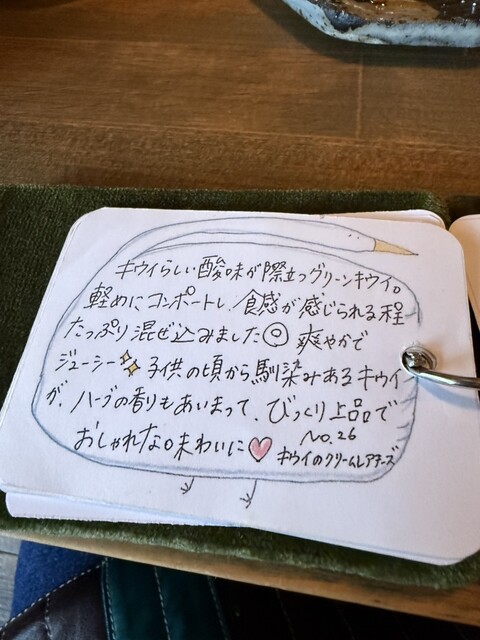 キウイらしい酸味が際立つグリーンキウイ。
軽めにコンポートし、食感が感じられる程
たっぷり混ぜ込みました◎ 爽やかで
ジューシー✨子供の頃から馴染みあるキウイ
が、ハーブの香りもあいまって、びっくり上品で
おしゃれな味わいに♡
No.26
キウイのクリームレアチーズ